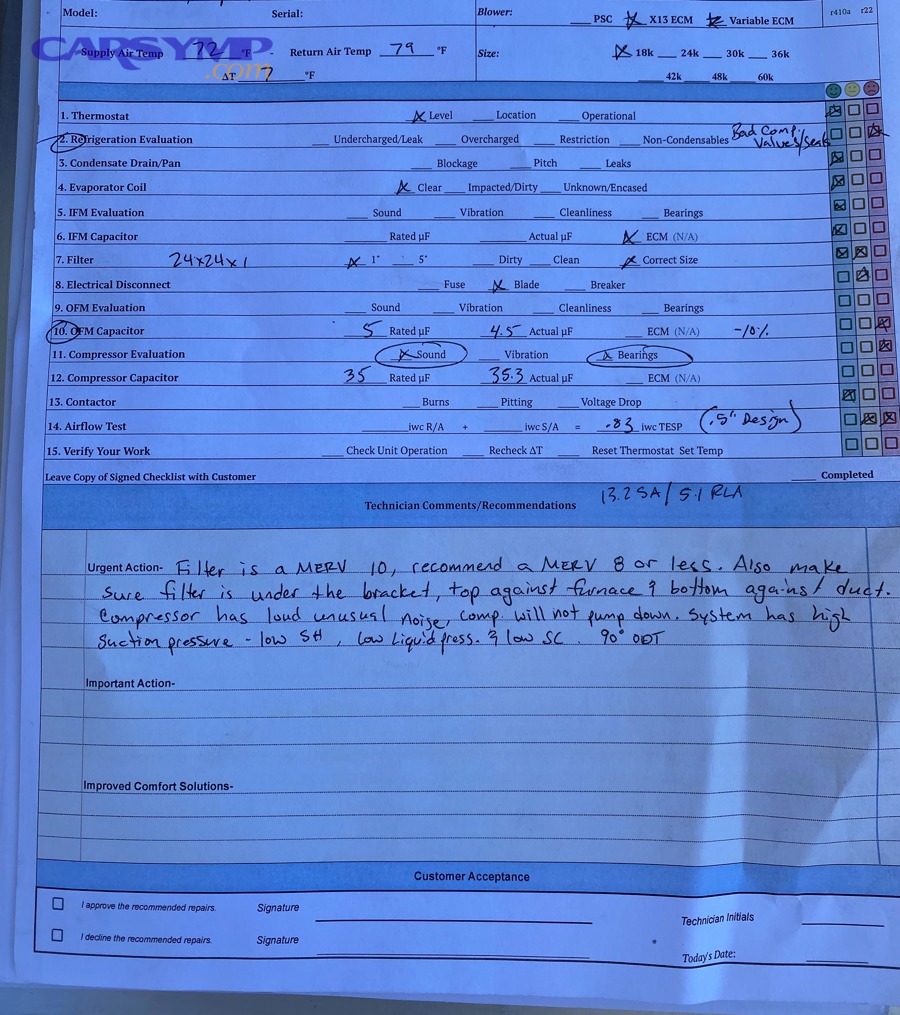 Model: Serial: Blower: PSC X X13 ECM X Variable ECM r410a r22
CARSYMP.com
Supply Air Temp 72 °F - Return Air Temp 79 °F Size: X 18k 24k 30k 36k
ΔT 7 °F 42k 48k 60k
1. Thermostat X Level Location Operational
2. Refrigeration Evaluation Undercharged/Leak Overcharged Restriction Non-Condensables Bad Comp. Valves/Seals
3. Condensate Drain/Pan Blockage Pitch Leaks
4. Evaporator Coil X Clear Impacted/Dirty Unknown/Encased
5. IFM Evaluation Sound Vibration Cleanliness Bearings
6. IFM Capacitor Rated µF Actual µF X ECM (N/A)
7. Filter 24x24x1 X 1" 5" Dirty Clean X Correct Size
8. Electrical Disconnect Fuse X Blade Breaker
9. OFM Evaluation Sound Vibration Cleanliness Bearings
10. OFM Capacitor 5 Rated µF 4.5 Actual µF ECM (N/A) -10%
11. Compressor Evaluation X Sound Vibration X Bearings
12. Compressor Capacitor 35 Rated µF 35.3 Actual µF ECM (N/A)
13. Contactor Burns Pitting Voltage Drop
14. Airflow Test iwc R/A + iwc S/A = .83 iwc TESP (.5" Design)
15. Verify Your Work Check Unit Operation Recheck ΔT Reset Thermostat Set Temp
Leave Copy of Signed Checklist with Customer Completed
Technician Comments/Recommendations 13.2 SA/ 5.1 RLA
Urgent Action- Filter is a MERV 10, recommend a MERV 8 or less. Also make
sure filter is under the bracket, top against furnace & bottom against duct.
Compressor has loud unusual noise, comp. will not pump down. System has high
suction pressure - low SH, low Liquid press. & low SC. 90° ODT
Important Action-
Improved Comfort Solutions-
Customer Acceptance
I approve the recommended repairs. Signature
Technician Initials
I decline the recommended repairs. Signature
Today's Date: